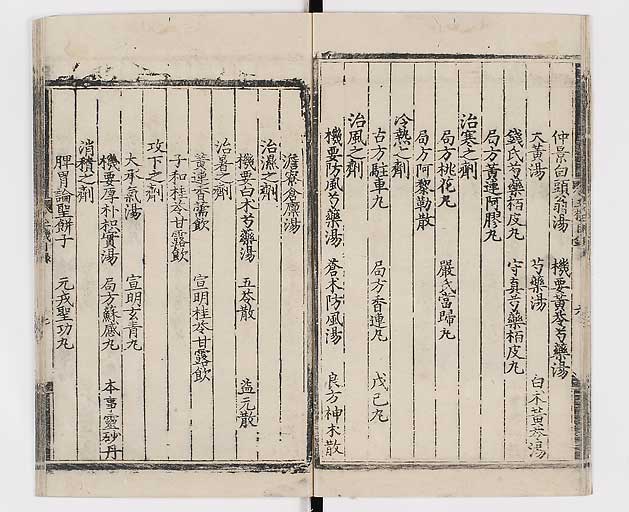 仲景白頭翁湯 機要黃芩芍藥湯
大黃湯 芍藥湯 白朮黃芩湯
錢氏芍藥栢皮丸 守真芍藥栢皮丸
局方黃連阿膠丸
治寒之劑
局方桃花丸 嚴氏當歸丸
局方阿黎勒散
冷熱之劑
古方駐車丸 局方香連丸 戊己丸
治風之劑
機要防風芍藥湯 蒼朮防風湯 良方神朮散
澹寮倉廩湯
治濕之劑
機要白朮芍藥湯 五苓散 益元散
治暑之劑
黃連香薷飲 宣明桂苓甘露飲
子和桂苓甘露飲
攻下之劑
大承氣湯 宣明玄青丸
機要厚朴枳實湯 局方蘇感丸 本事靈砂丹
消積之劑
脾胃論聖餅子 元戎聖功丸